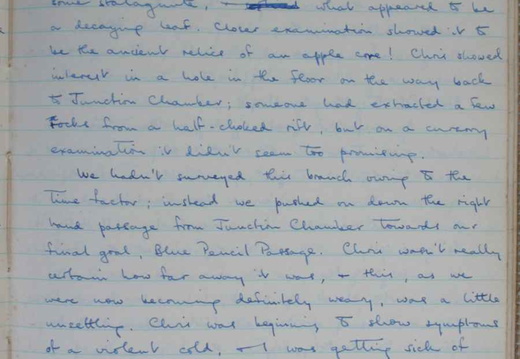 some stalagmite, + what appeared to be
a decaying leaf. Closer examination showed it to
be the ancient relics of an apple core! Chris showed
interest in a hole in the floor on the way back
to Junction Chamber; someone had extracted a few
rocks from a half-choked rift, but on a cursory
examination it didn't seem too promising.
We hadn't surveyed this branch owing to the
time factor; instead we pushed on down the right
hand passage from Junction Chamber towards our
final goal, Blue Pencil Passage. Chris wasn't really
certain how far away it was, + this, as we
were now becoming definitely weary, was a little
unsettling. Chris was beginning to show symptoms
of a violent cold, + I was getting sick of